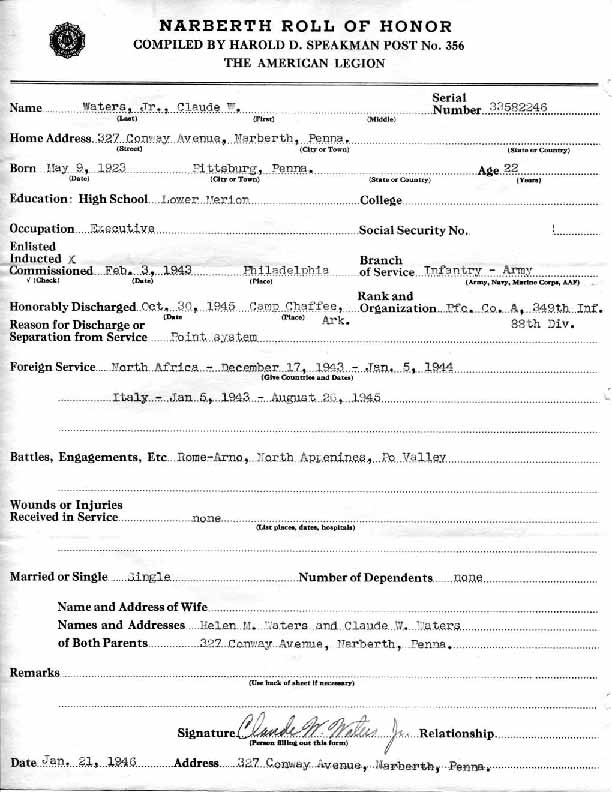 NARBERTH ROLL OF HONOR
COMPILED BY HAROLD D. SPEAKMAN POST No. 356
THE AMERICAN LEGION
Name Waters, Jr., Claude W. Serial Number 33582246
(Last) (First) (Middle)
Home Address 327 Conway Avenue, Narberth, Penna.
(Street) (City or Town) (State or Country)
Born May 9, 1923 Pittsburg, Penna. Age 22
(Date) (City or Town) (State or Country) (Years)
Education: High School Lower Merion College
Occupation Executive Social Security No.
Enlisted
Inducted X Branch
Commissioned Feb. 3, 1943 Philadelphia of Service Infantry - Army
√ (Check) (Date) (Place) (Army, Navy, Marine Corps, AAF)
Rank and
Honorably Discharged Oct. 30, 1945 Camp Chaffee, Organization Pfc. Co. A, 349th Inf.
(Date (Place) Ark. 88th Div.
Reason for Discharge or
Separation from Service Point system
Foreign Service North Africa - December 17, 1943 - Jan. 5, 1944
(Give Countries and Dates)
Italy - Jan 5, 1943 - August 26, 1945
Battles, Engagements, Etc Rome-Arno, North Appenines, Po Valley
Wounds or Injuries
Received in Service none
(List places, dates, hospitals)
Married or Single Single Number of Dependents none
Name and Address of Wife
Names and Addresses Helen M. Waters and Claude W. Waters
of Both Parents 327 Conway Avenue, Narberth, Penna.
Remarks
(Use back of sheet if necessary)
Signature Claude W. Waters Jr. Relationship
(Person filling out this form)
Date Jan. 21, 1946 Address 327 Conway Avenue, Narberth, Penna.